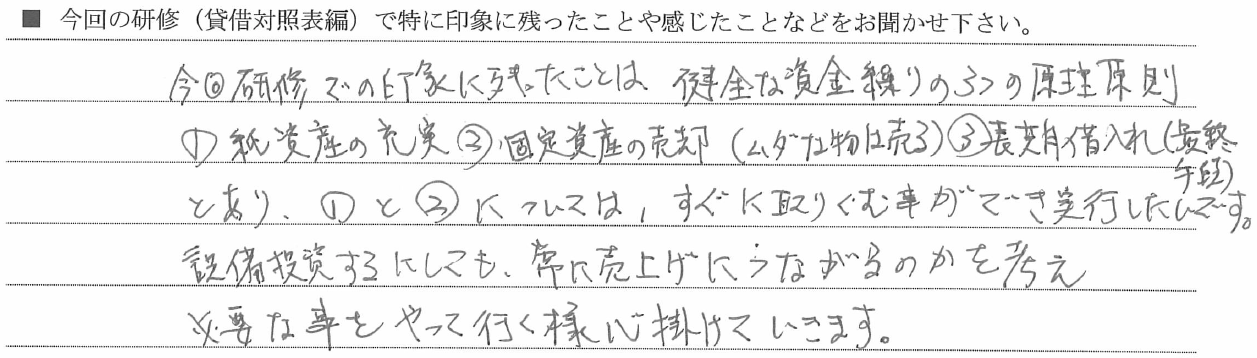 ■ 今回の研修（貸借対照表編）で特に印象に残ったことや感じたことなどをお聞かせ下さい。
今回研修での印象に残ったことは、健全な資金繰りの3つの原理原則
① 純資産の充実 ② 固定資産の売却 (ムダな物は売る) ③ 長期借入れ (最終手段)
とあり、①と②については、すぐに取りくむ事ができ実行したいです。
設備投資するにしても、常に売上げにつながるのかを考え
必要な事をやって行く様心掛けていきます。